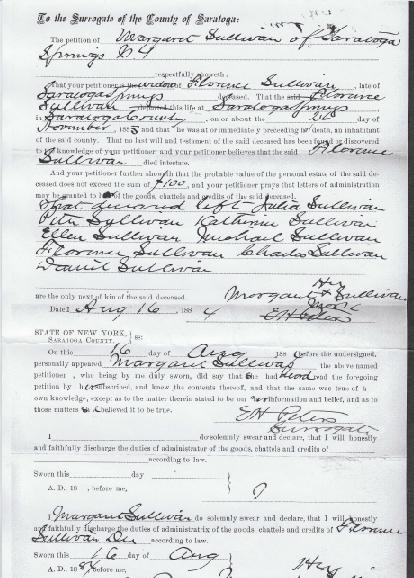 To the Surrogate of the County of Saratoga:
The petition of Margaret Sullivan of Saratoga
Springs N Y
respectfully sheweth:
That your petitioner is the widow Florence Sullivan, late of
Saratoga Springs deceased. That the said Florence
Sullivan departed this life at Saratoga Springs
in Saratoga County, on or about the day of
November, 188 and that he was at or immediately preceding death, an inhabitant
of the said county. That no last will and testament of the said deceased has been found or discovered
to knowledge of your petitioner and your petitioner believes that the said Florence
Sullivan died intestate.
And your petitioner further sheweth that the probable value of the personal estate of the said de-
ceased does not exceed the sum of $100, and your petitioner prays that letters of administration
may be granted to of the goods, chattels and credits of the said deceased.
That deceased left Julia Sullivan
Peter Sullivan Katherine Sullivan
Ellen Sullivan Michael Sullivan
Florence Sullivan Charles Sullivan
Daniel Sullivan
are the only next of kin of the said deceased.
Margaret Sullivan
Dated Aug 16 1884
E H Peters
STATE OF NEW YORK,
SARATOGA COUNTY. } ss:
On this 16 day of Aug 188 before the undersigned,
personally appeared Margaret Sullivan the above named
petitioner, who being by me duly sworn, did say that she had read the foregoing
petition by subscribed, and knew the contents thereof, and that the same was true of h
own knowledge, except as to the matter therein stated to be on her information and belief, and as to
those matters she believed it to be true.
E H Peters
Surrogate
I do solemnly swear and declare, that I will honestly
and faithfully discharge the duties of administrator of the goods, chattels and credits of
according to law.
Sworn this day
A. D. 18 , before me,
I Margaret Sullivan do solemnly swear and declare, that I will honestly
and faithfully discharge the duties of administratrix of the goods chattels and credits of Florence
Sullivan Dec according to law.
Sworn this 16 day of Aug
A. D. 1884, before me,